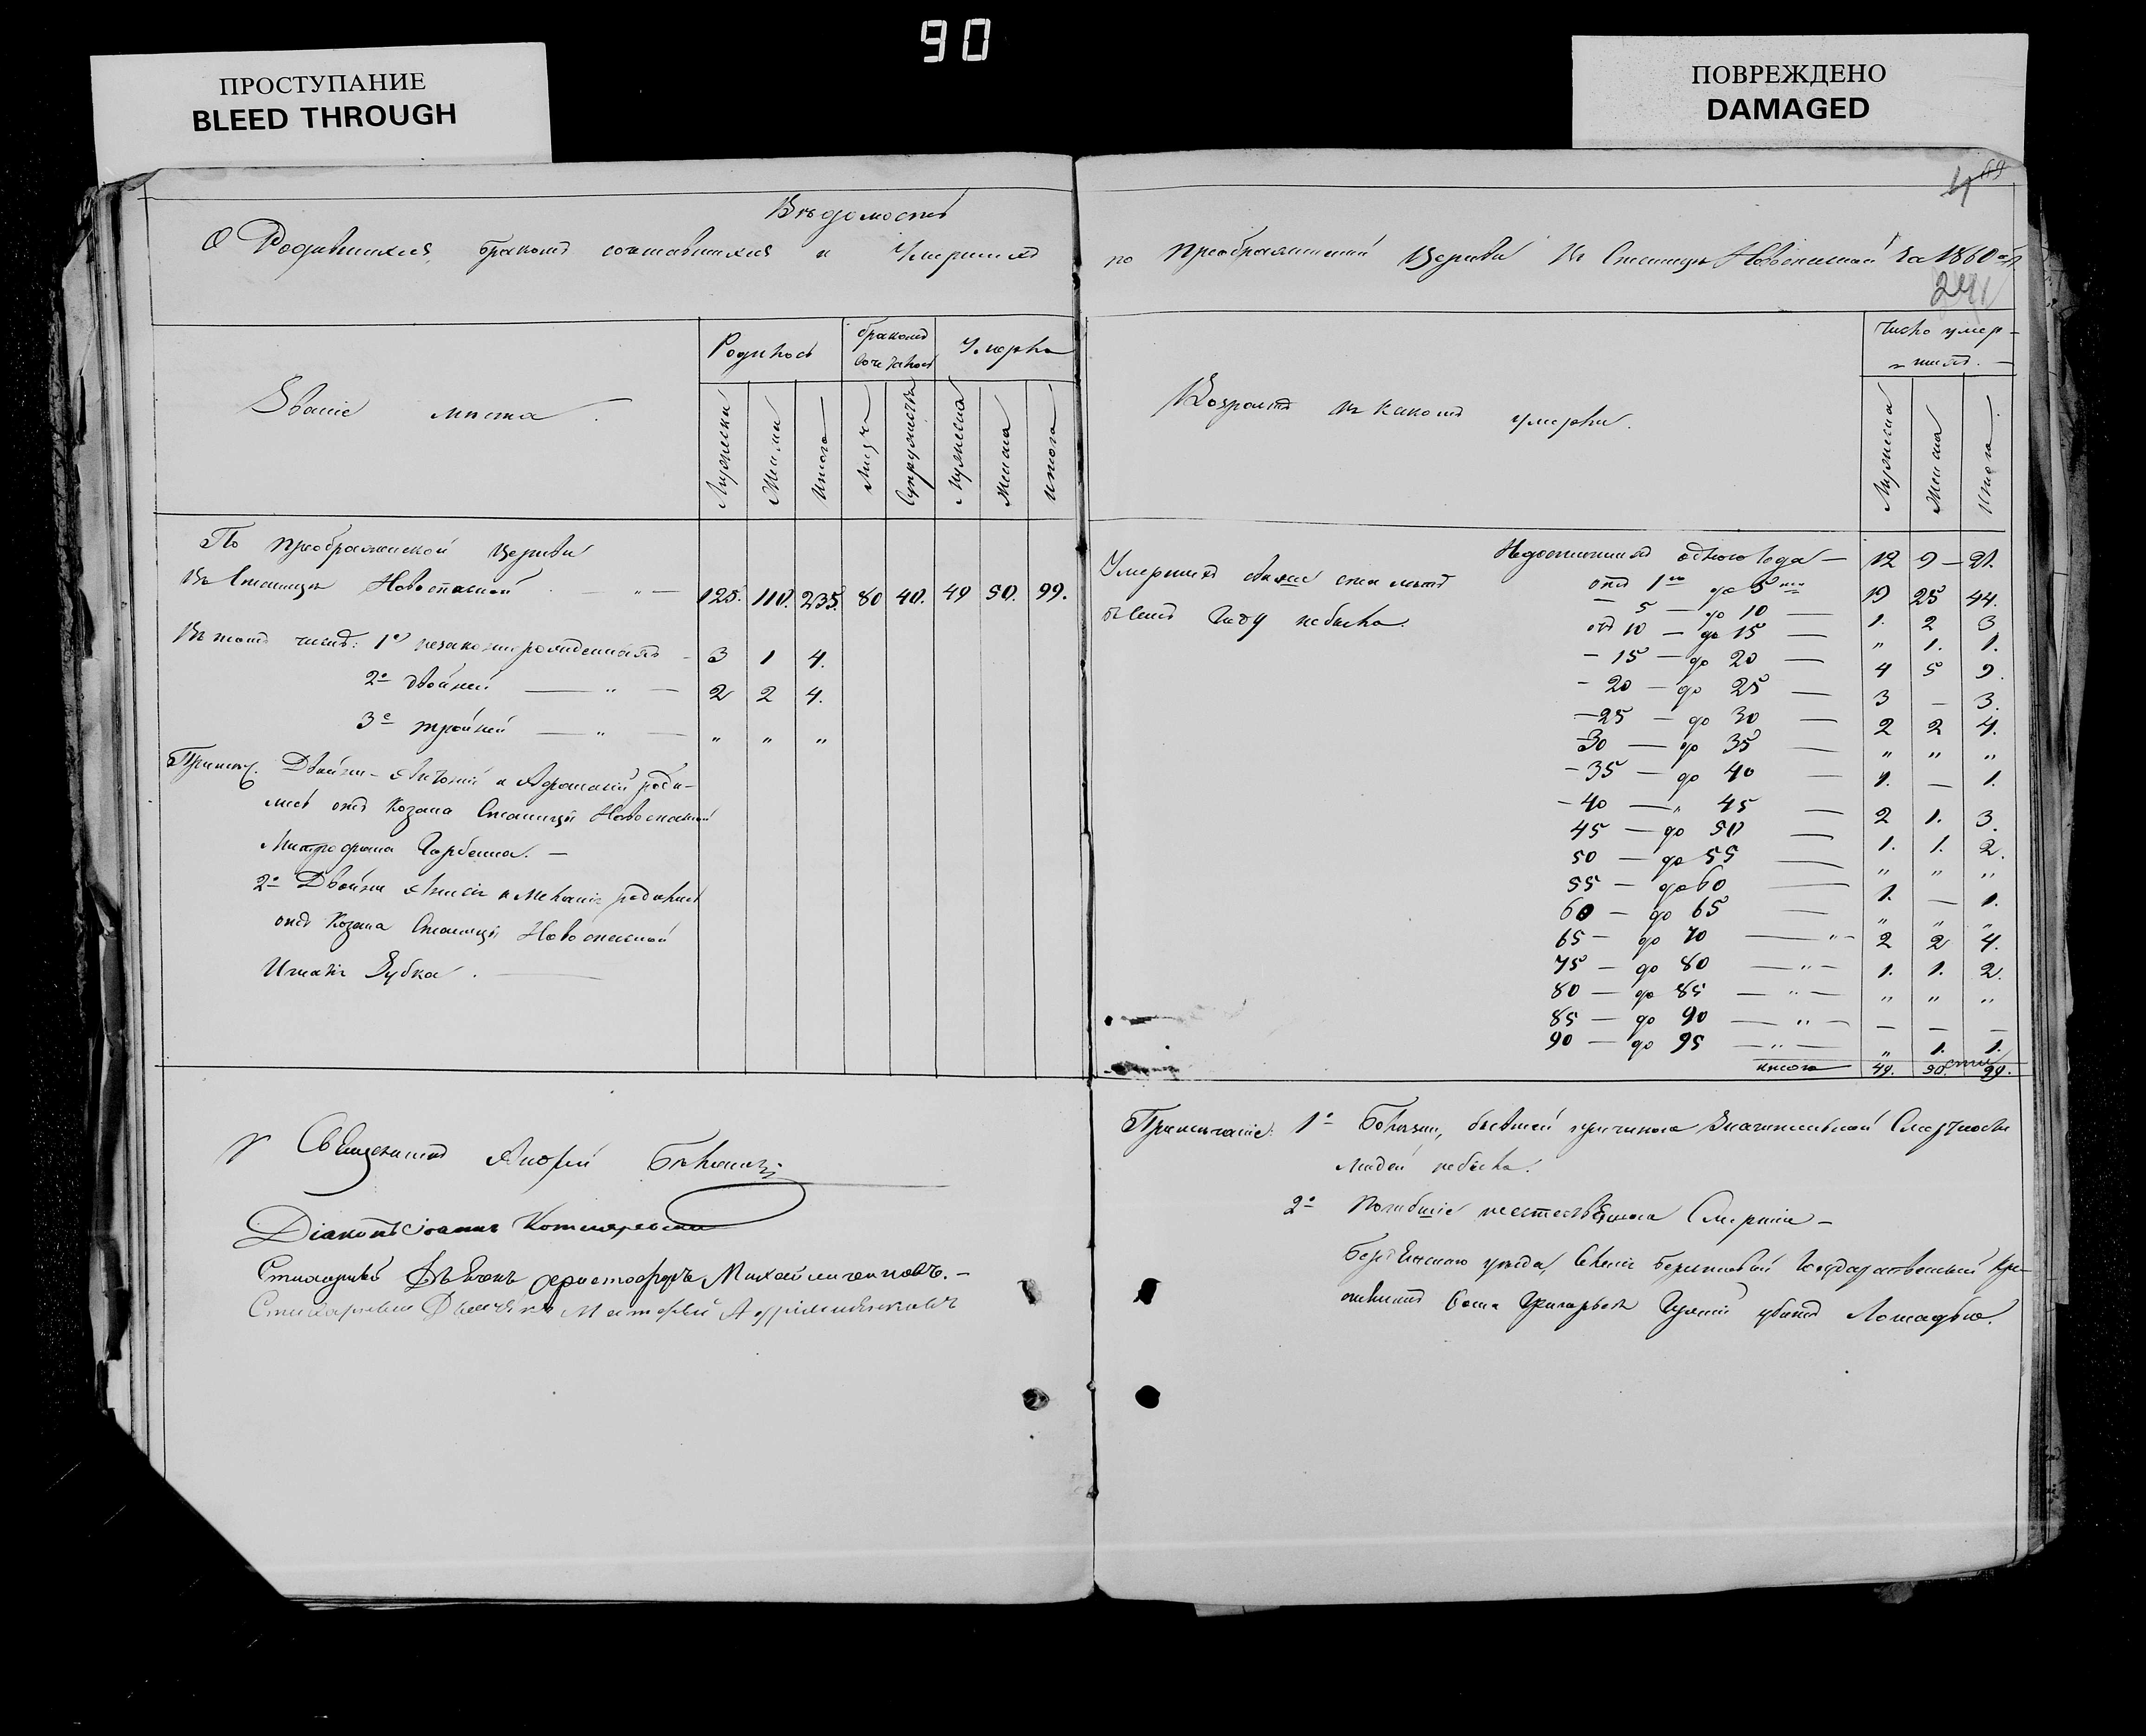 90
ПРОСТУПАНИЕ
BLEED THROUGH
ПОВРЕЖДЕНО
DAMAGED
49
Вѣдомость
О Родившихся, бракомъ сочетавшихся и Умершихъ
по Преображенской Церкви въ Станицѣ Новоспаской за 1860й
241
Званіе мѣста.
Родилось
бракомъ сочеталось
Умерло
Мужеска
Женска
Итого
Лицъ
Супружествъ
Мужеска
Женска
Итого
По Преображенской Церкви
Въ Станицѣ Новоспаской - " - 125. 110. 235. 80 40. 49 50. 99.
Въ томъ числѣ: 1е незаконнорожденныхъ - 3 1 4.
2е двойней — " — 2 2 4.
3е тройней — " — " " "
Примѣч. Двойни - Антоній и Афанасій роди-
лись отъ Козака Станицы Новоспаской
Митрофана Горбенка. —
2е Двойни Анисія и Меланія родились
отъ Козака Станицы Новоспаской
Игнатія Зубка. —
Священникъ Андрей
Діаконъ Іоаннъ Котляревскій
Стихарный Дьячекъ Христофоръ Михайличенковъ. -
Стихарный
Возрастъ въ какомъ умерли.
Число умер-
шихъ. —
Мужеска
Женска
Итого
Умершихъ свыше ста лѣтъ
въ семъ году небыло.
Недостигшихъ одного года — 12 9 — 21.
отъ 1го до 5ти 19 25 44.
— 5 — до 10 — 1. 2 3
отъ 10 — до 15 — " 1. 1.
- 15 — до 20 — 4 5 9.
- 20 — до 25 — 3 — 3.
- 25 — до 30 — 2 2 4.
- 30 — до 35 — " " "
- 35 — до 40 — 1. — 1.
- 40 — " 45 — 2 1. 3.
45 — до 50 — 1. 1. 2.
50 — до 55 — " " "
55 — до 60 — 1. — 1.
60 — до 65 — " " "
65 — до 70 — " — 2 2 4.
75 — до 80 — " — 1. 1. 2.
80 — до 85 — " — " " "
85 — до 90 — " — — — —
90 — до 95 — " — " 1. 1.
итого 49. 50. 99.
Примѣчаніе: 1е Болѣзни, бывшей причиною значительной смертности
людей небыло.
2е Погибшіе неестественною Смертію —
Бердянскаго уѣзда, Селенія Берестовой Государственный Кре-
стьянинъ убитъ Лошадью.